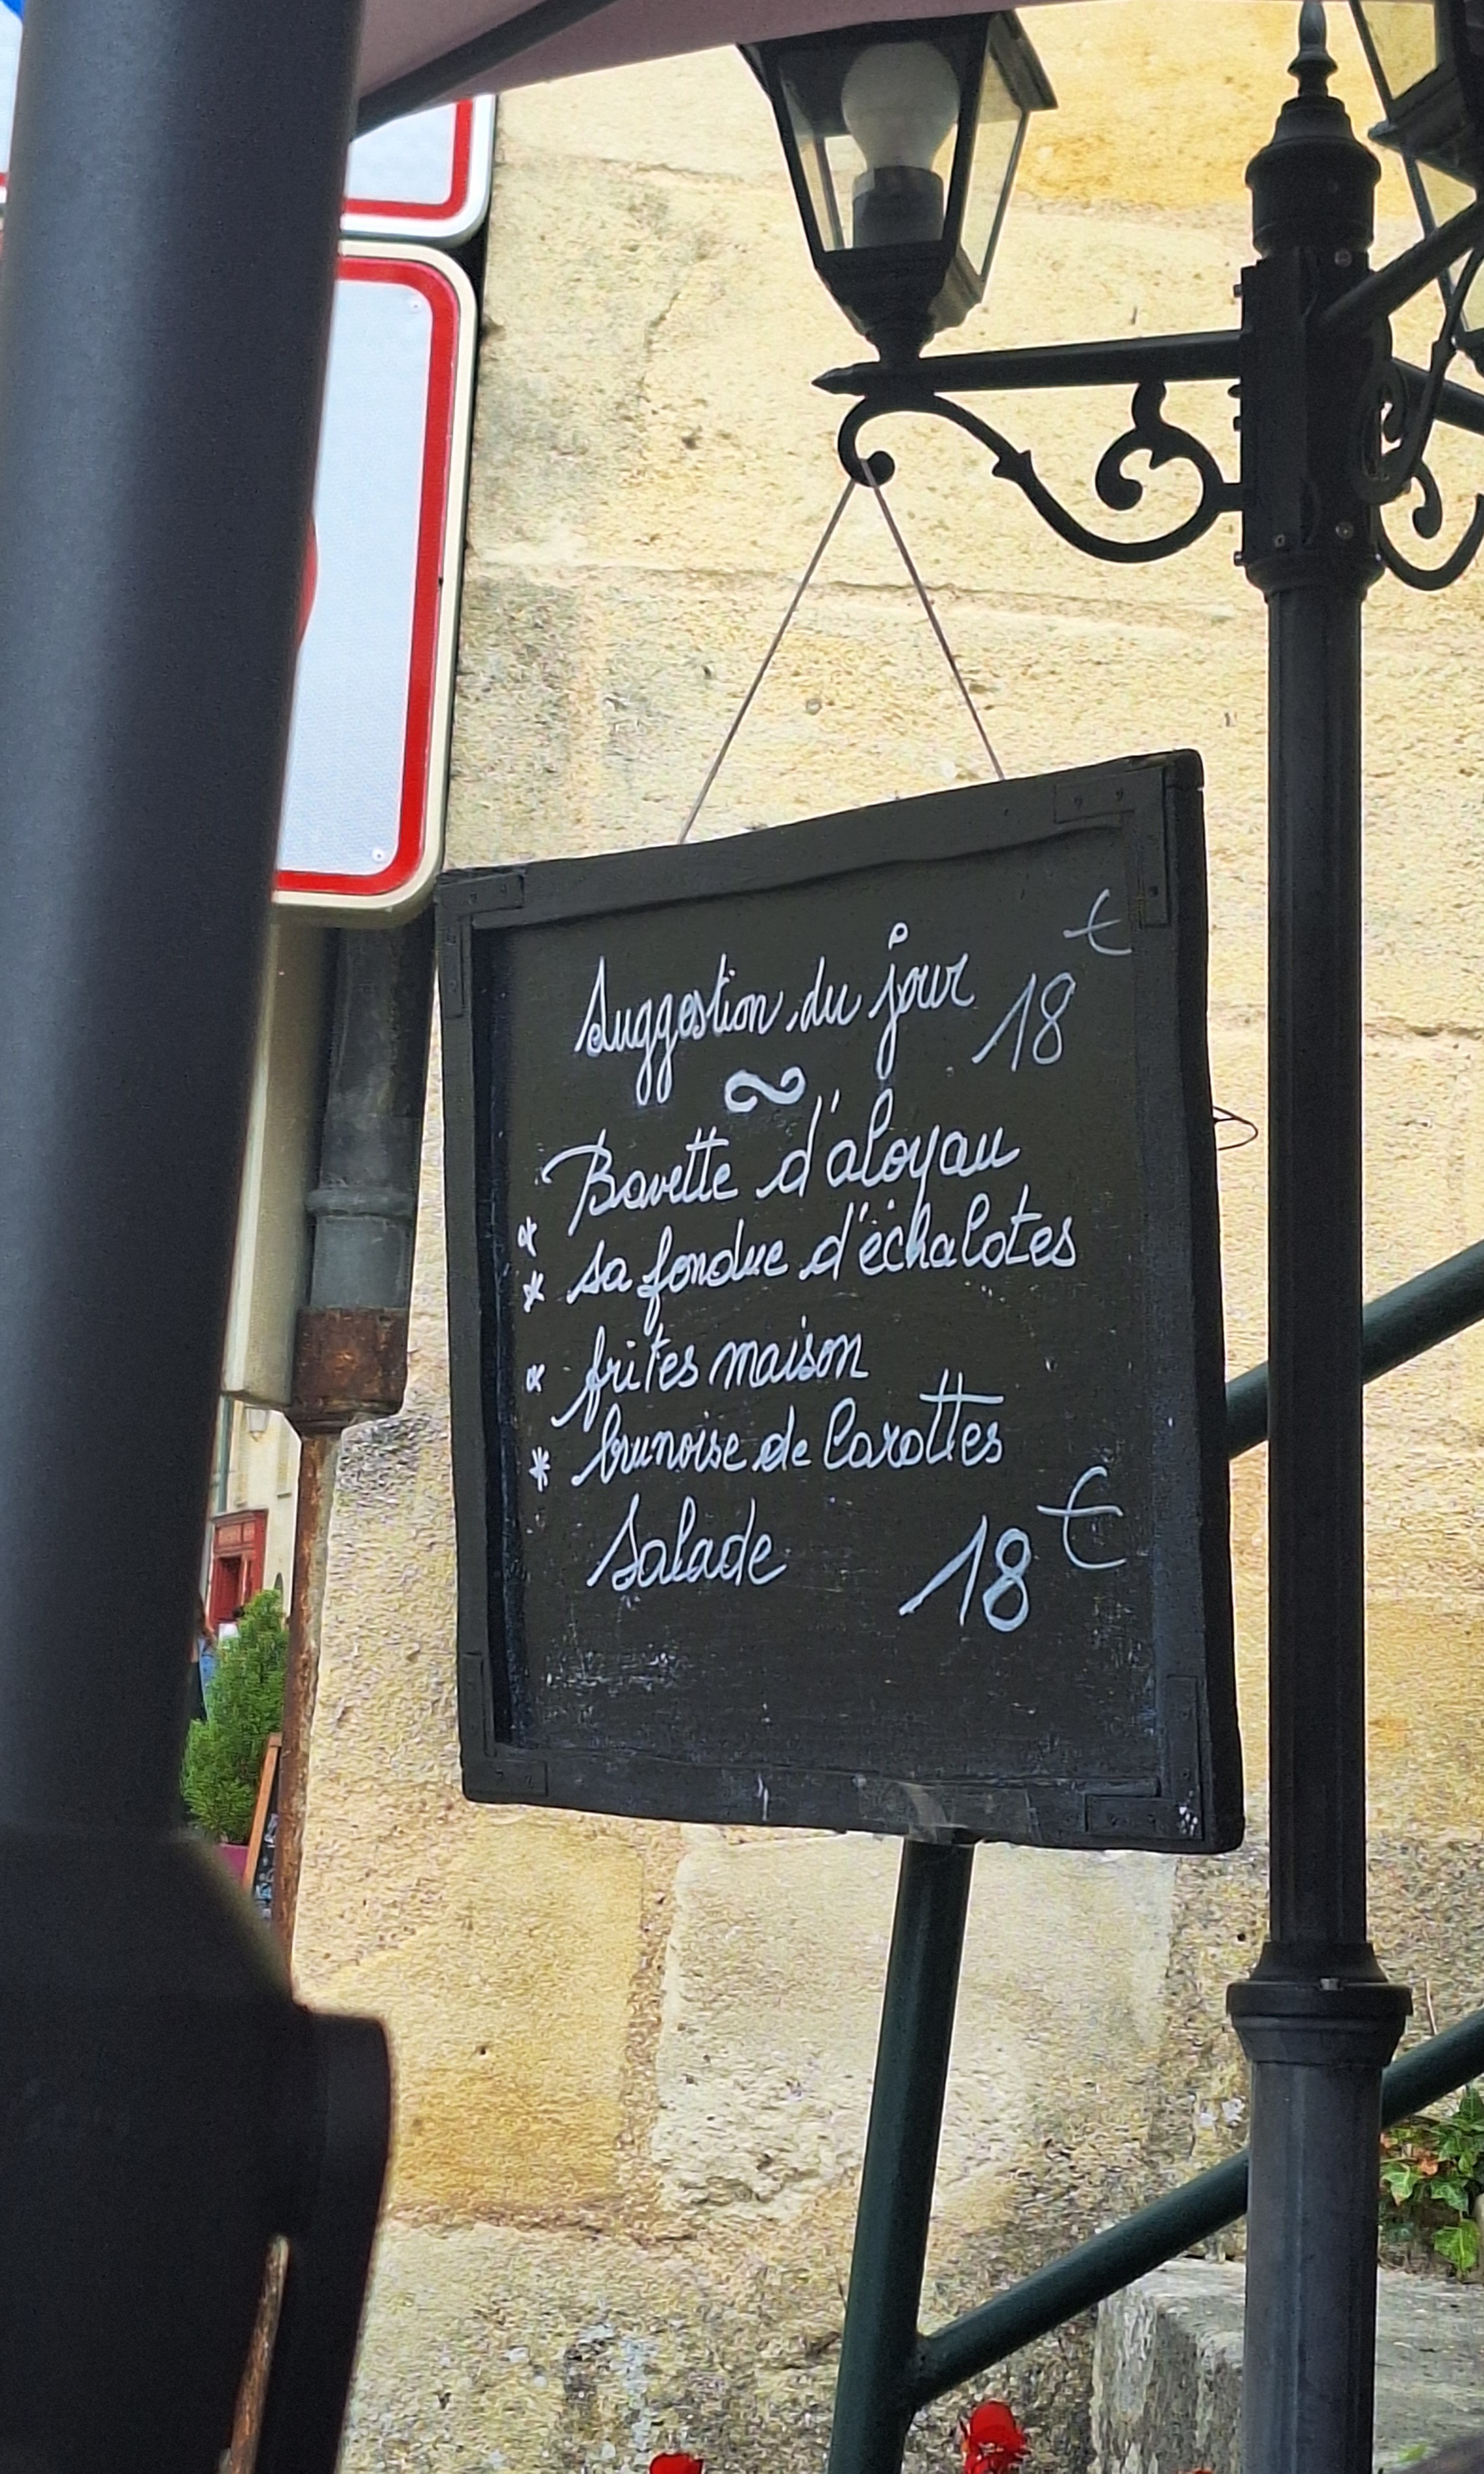 Suggestion du jour 18 €
* Bavette d'aloyau
* sa fondue d'échalotes
* frites maison
* brunoise de Carottes
Salade 18 €